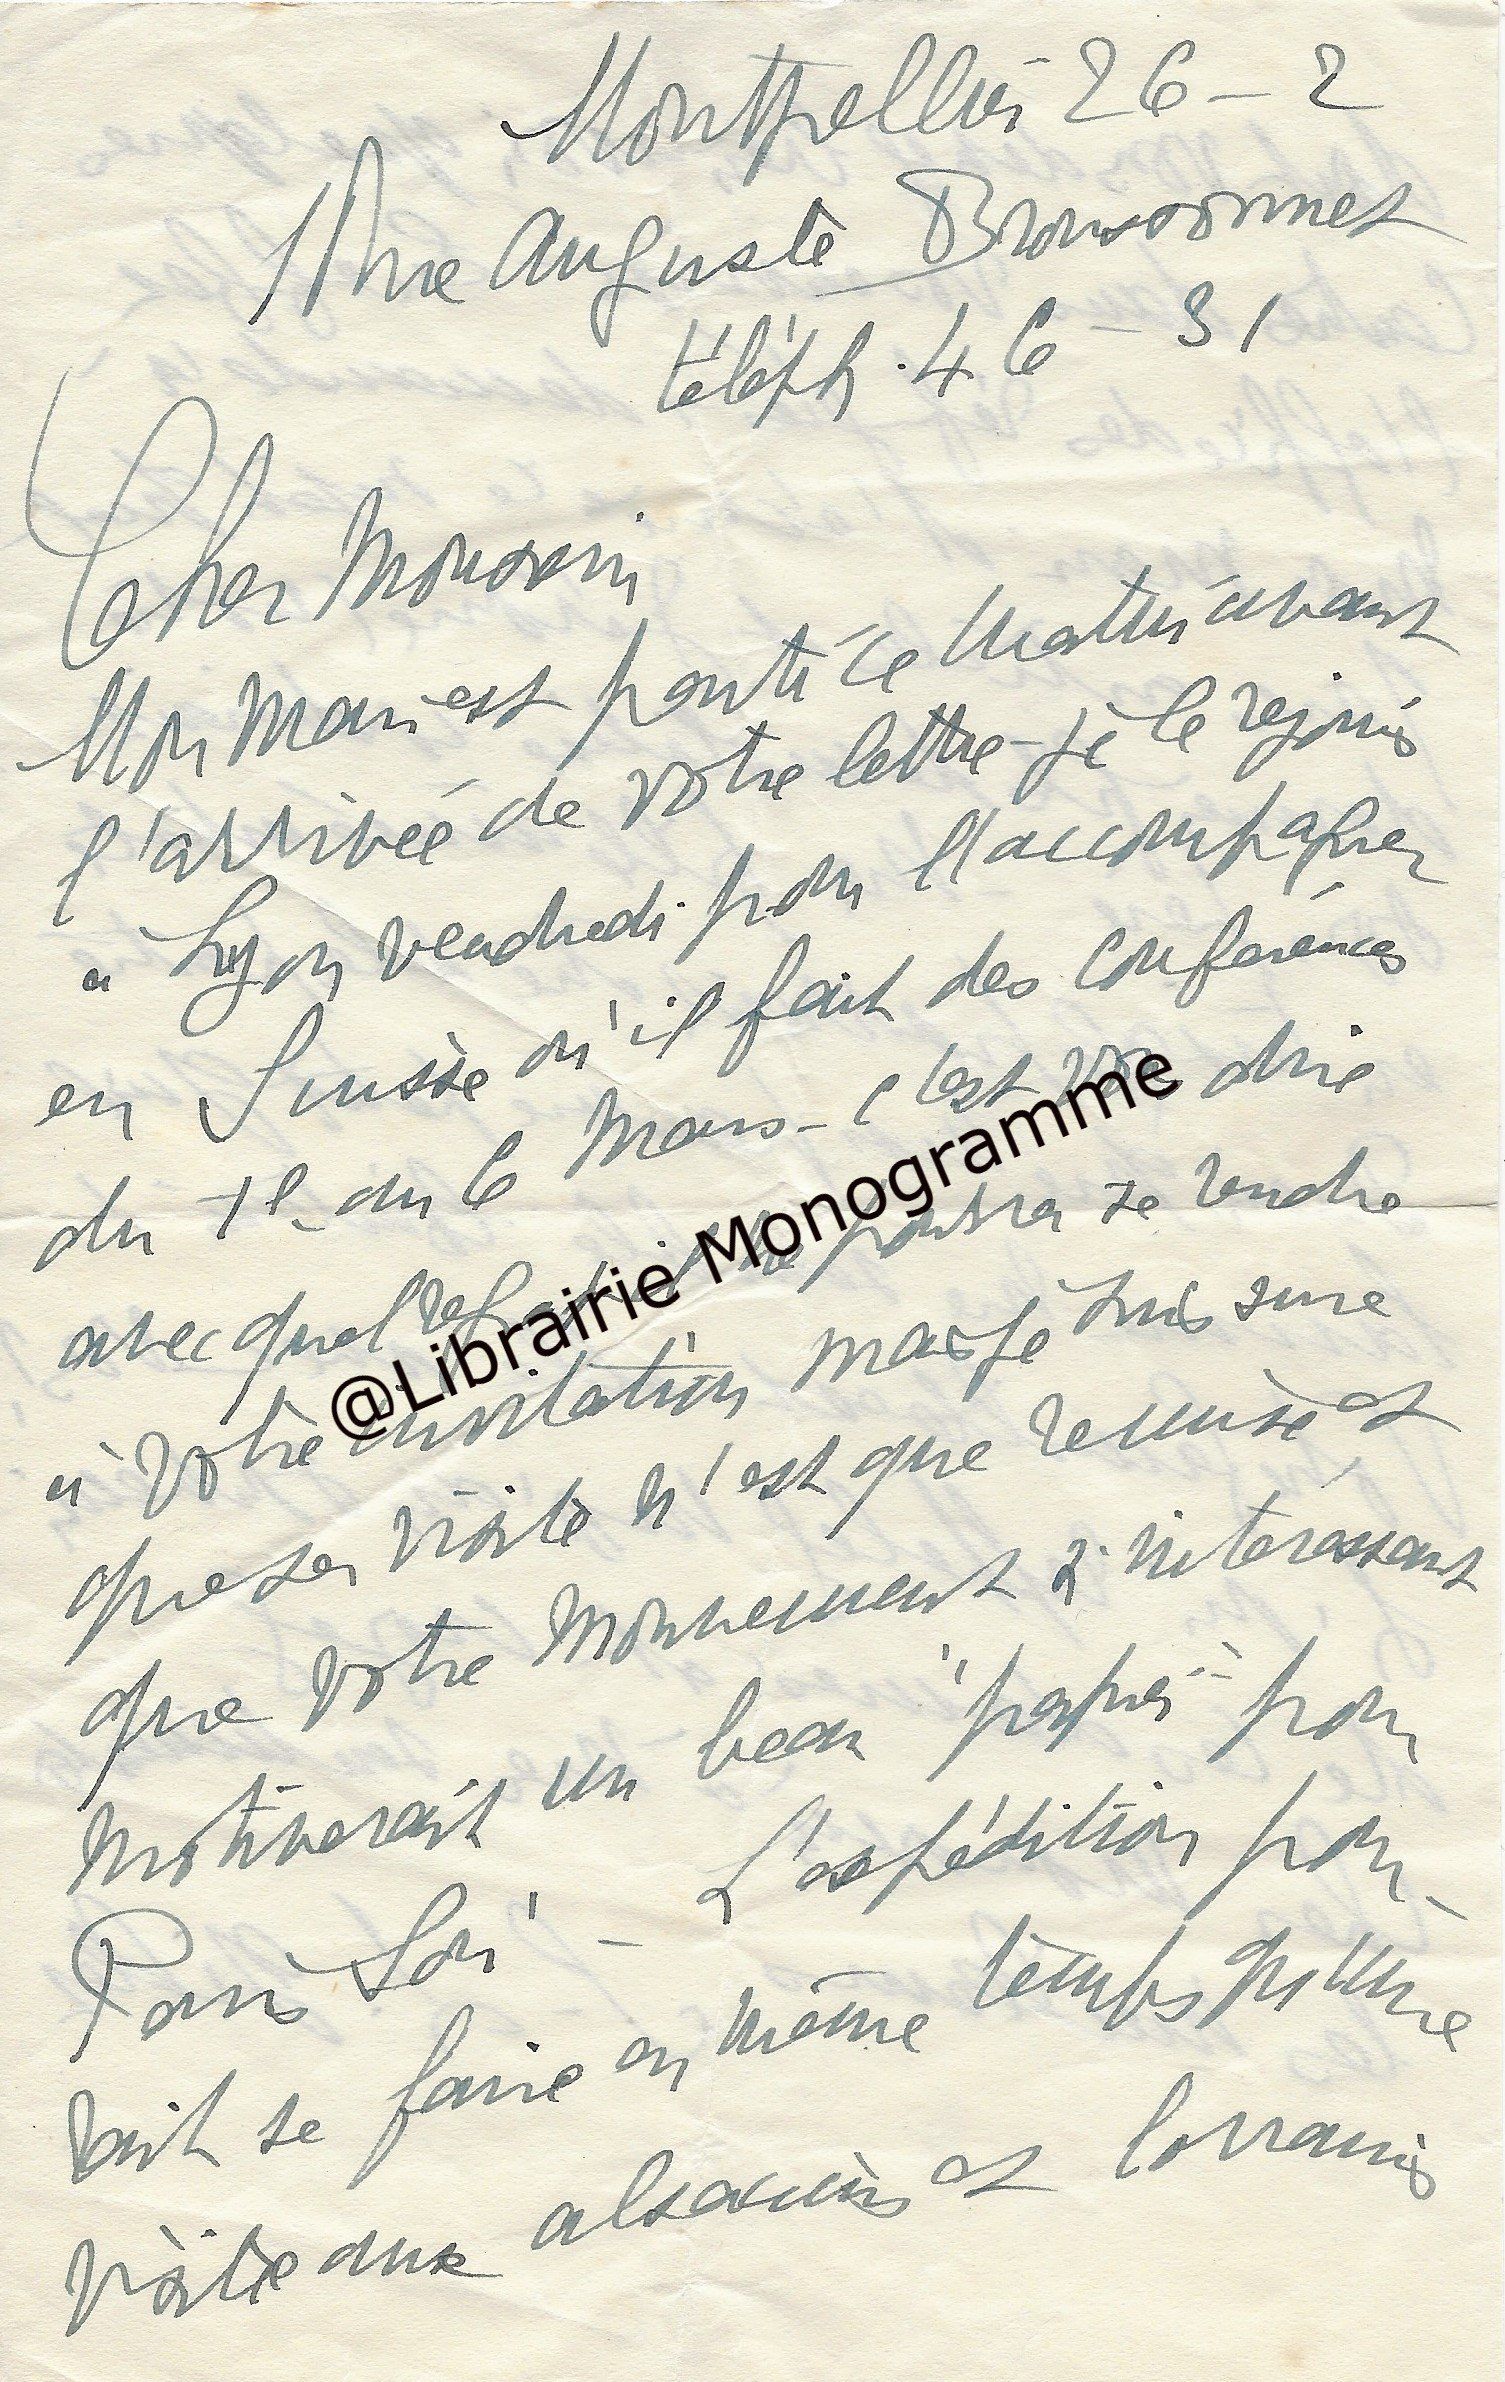 Montpellier 26 - 2
11 rue Auguste Broussonnet
téléph. 46 - 31
Cher Monsieur
Mon mari est parti ce matin avant
l'arrivée de votre lettre - je le rejoins
à Lyon vendredi pour l'accompagner
en Suisse où il fait des conférences
du 1er au 6 Mars - c'est vous dire
avec quel regret il ne pourra se rendre
à votre invitation mais je suis sure
que sa visite n'est que remise et
que votre mouvement si intéressant
motiverait un beau "papier" pour
Paris Soir - L'expédition pour-
rait se faire en même temps qu'une
visite aux alsaciens et lorrains
@Librairie Monogramme